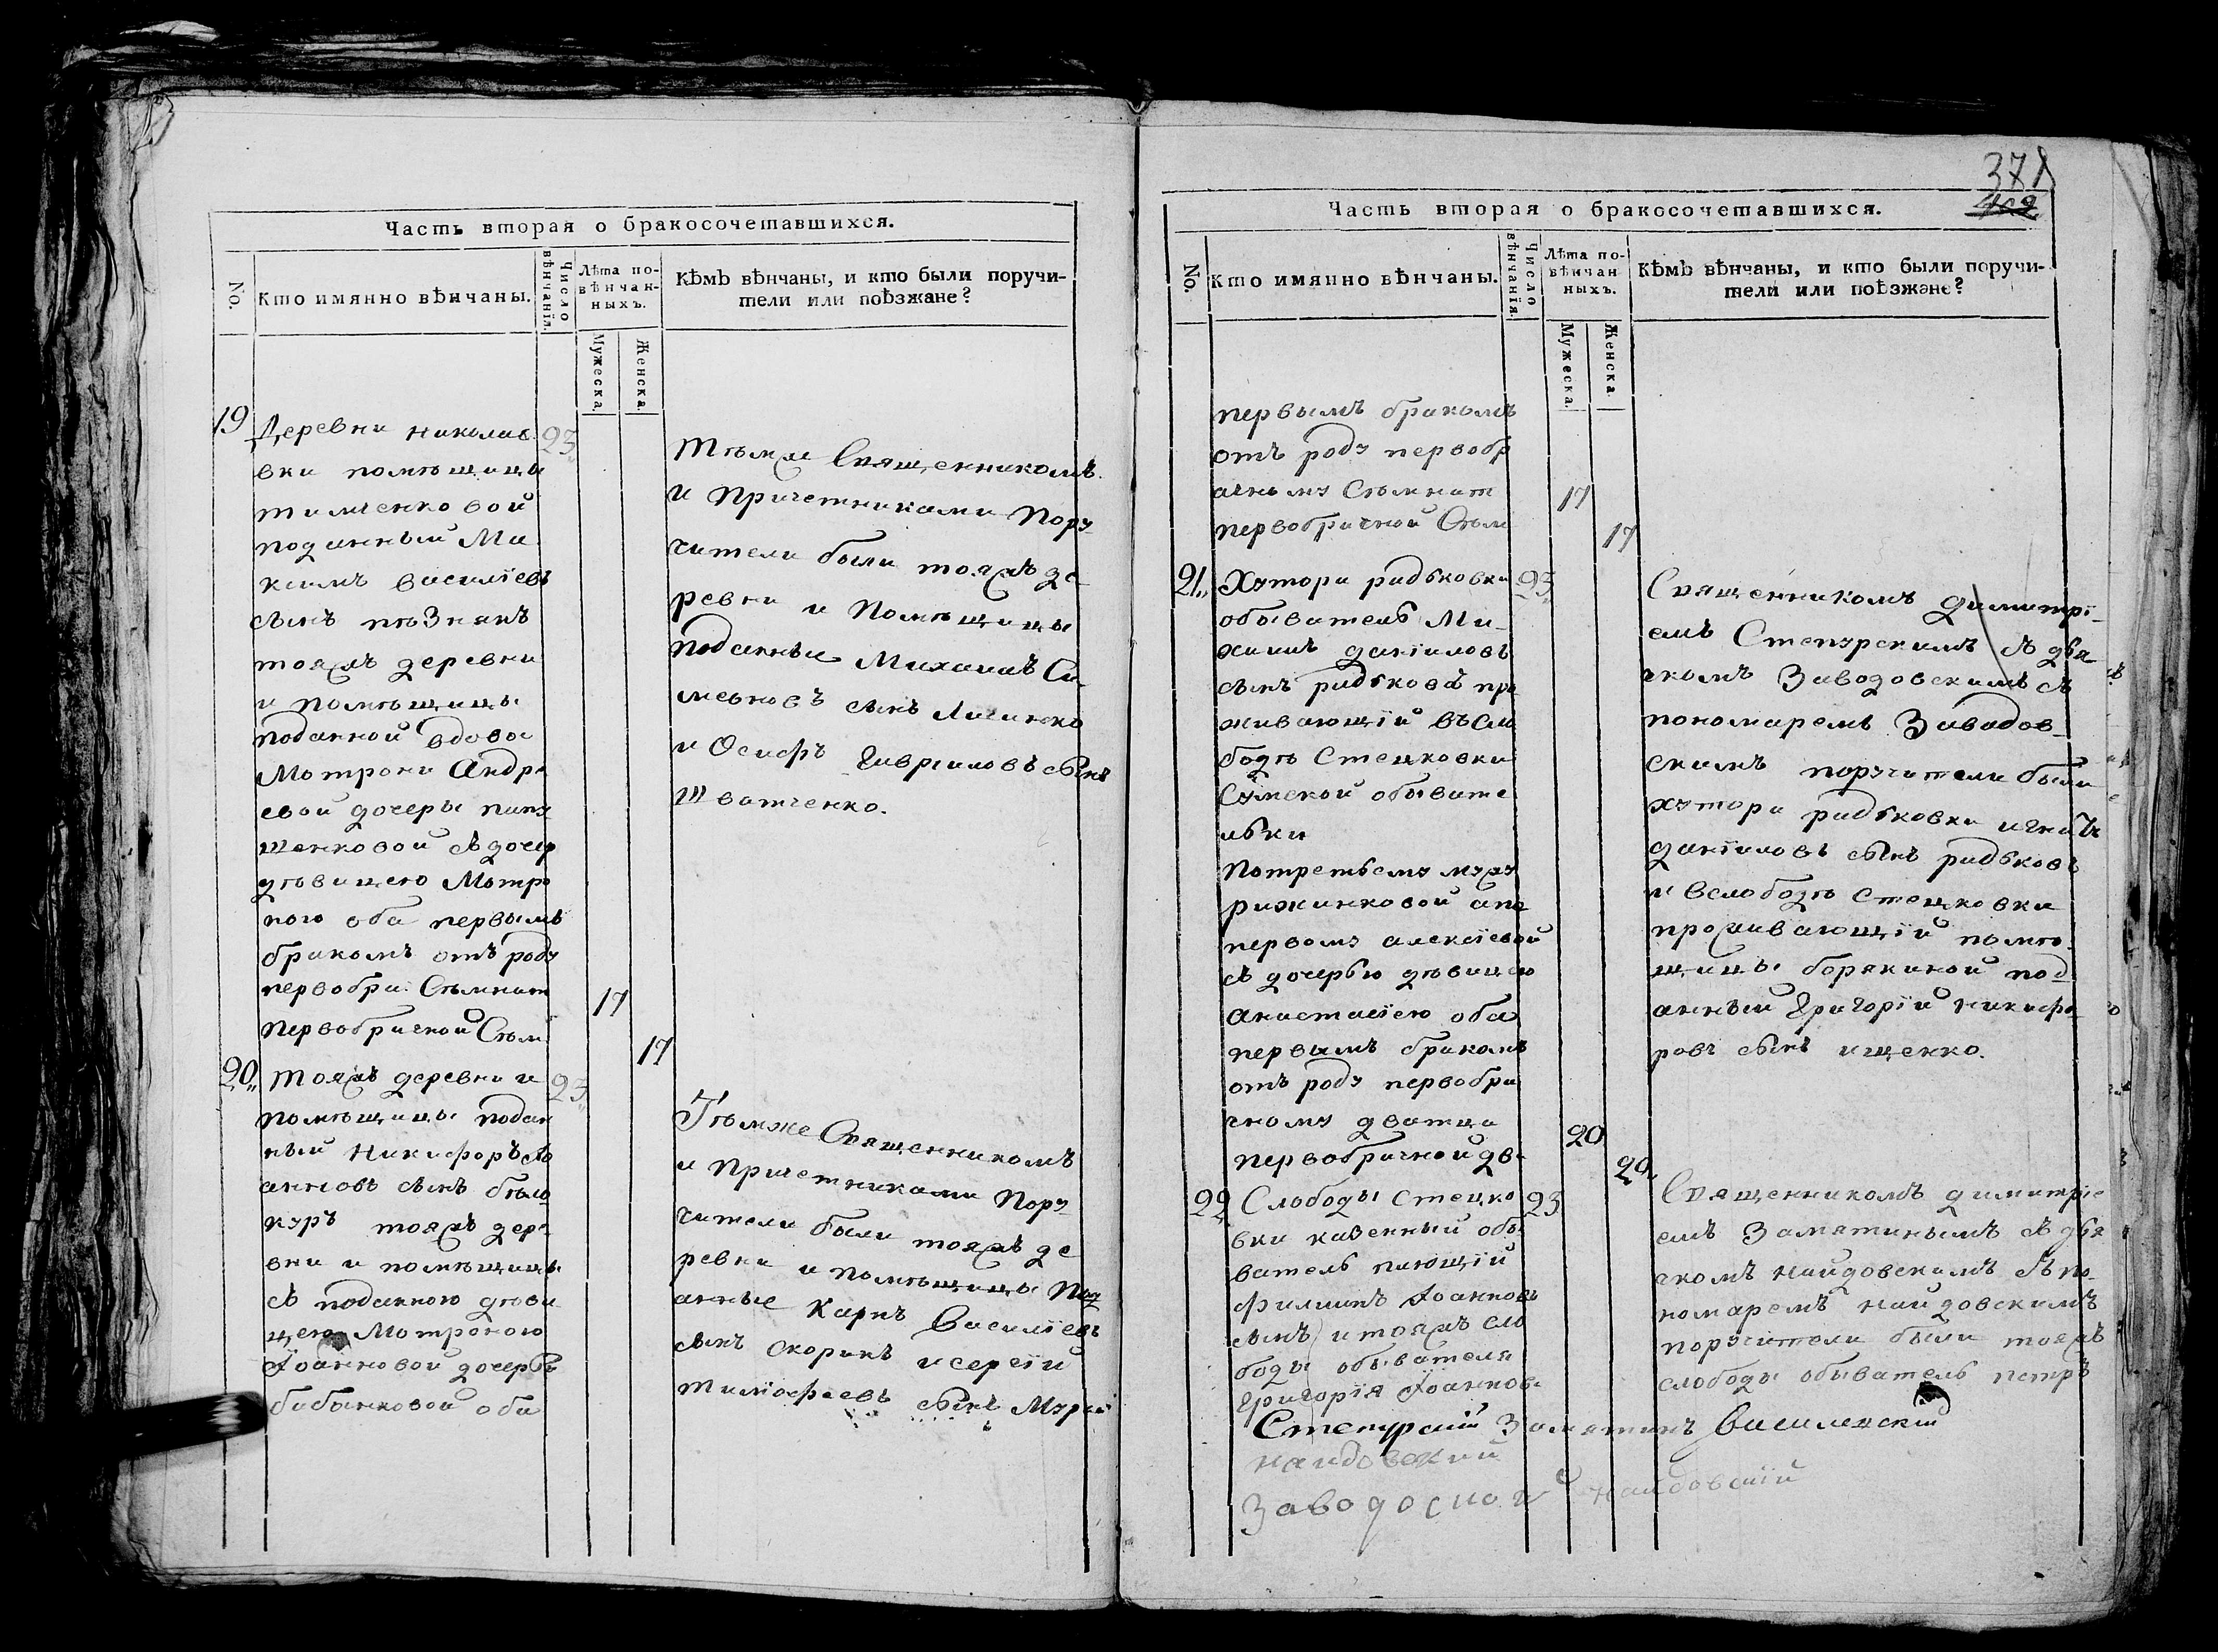 Часть вторая о бракосочетавшихся.
No.
Кто имянно вѣнчаны.
Число вѣнчанія.
Лѣта по-
вѣнчан-
ныхъ.
Мужеска.
Женска.
Кѣмъ вѣнчаны, и кто были поручи-
тели или поѣзжане?
19 Деревни николае 23
вки помѣщицы
тимченковой
поданный Ма
ксимъ василіевъ
сынъ
тояжъ деревни
и помѣщицы
поданной вдовы
Мотрони Андре
евой дочеры
щенковой съ дочер
дѣвицею Мотро
ною оба первымъ
бракомъ отъ роду
первобра. Сѣмнат 17
первобрачной Сѣм 17
Тѣмже Священникомъ
и Причетниками Пору
чители были тояжъ де
ревни и Помѣщицы
поданные Михаилъ Си
меоновъ сынъ
и Осифъ Гавріиловъ сынъ
Шватченко.
20 Тояжъ деревни и 23
помѣщицы подан
ный Никифоръ
анновъ сынъ бѣло
куръ тояжъ дере
вни и помѣщицы
съ поданною дѣви
цею Мотроною
Іоанновой дочерью
бабынковой оба
Тѣмже Священникомъ
и Причетниками Пору
чители были тояжъ де
ревни и помѣщицы Под
анные Карпъ Василіевъ
сынъ скорикъ и сергій
тимофѣевъ сынъ
371
Часть вторая о бракосочетавшихся.
No.
Кто имянно вѣнчаны.
Число вѣнчанія.
Лѣта по-
вѣнчан-
ныхъ.
Мужеска.
Женска.
Кѣмъ вѣнчаны, и кто были поручи-
тели или поѣзжане?
первымъ бракомъ
отъ роду первобр
ачному Сѣмнат 17
первобрачной Сѣм 17
21 Хутора радьковки 23
обыватель Ми-
хаилъ даніиловъ
сынъ радьковъ про
живающій въ Сло
бодѣ Стецковки
Сумской обывате
льки
Потретьему мужу
рижинковой апо
первому алексіевой
съ дочерью дѣвицею
анастасіею оба
первымъ бракомъ
отъ роду первобра
чному дватца 20
первобрачной два 20
Священникомъ димитрі-
емъ Степурскимъ съ дья
чкомъ Заводовскимъ съ
пономаремъ Заводов-
скимъ поручители были
хутора радьковки
даніиловъ сынъ радьковъ
и вслободѣ стецковки
проживающій помѣ-
щицы борякиной под
анный Григорій Никифо
ровъ сынъ ищенко.
22 Слободы Стецко 23
вки казенный обы
ватель
филипъ Іоанновъ
сынъ и тояжъ сло
боды обывателя
Григорія Іоаннов
Священникомъ димитріе
емъ Замятинымъ съ дья
чкомъ найдовскимъ съ по-
номаремъ найдовскимъ
поручители были тояжъ
слободы обыватель петръ
Степурскій Замятинъ Василевскій
найдовскій
Заводоской найдовскій